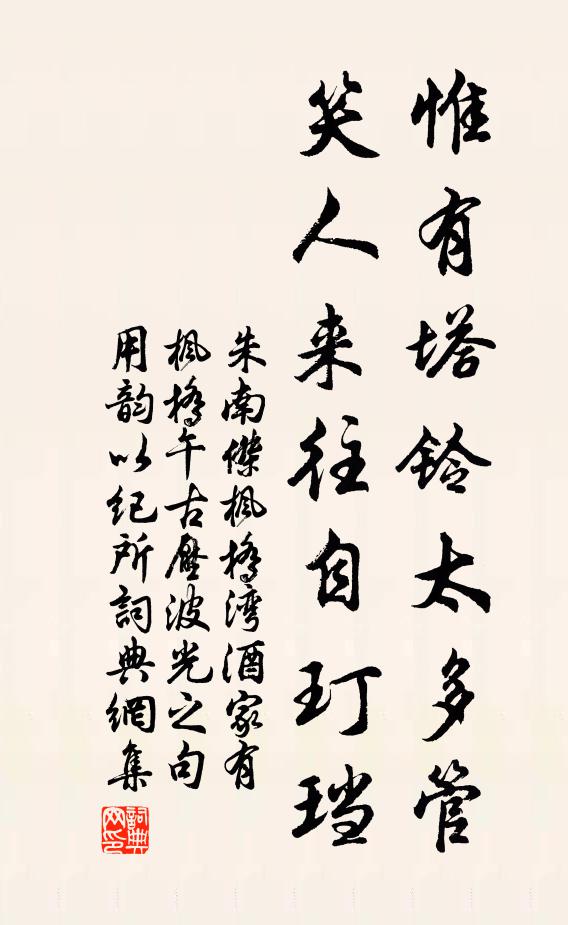 惟有塔鈴太多管
笑人来往自玎璫
朱南傑楓橋灣酒家有
楓橋午古壓波光之句
用韵以紀所詞典網集
詞典網印